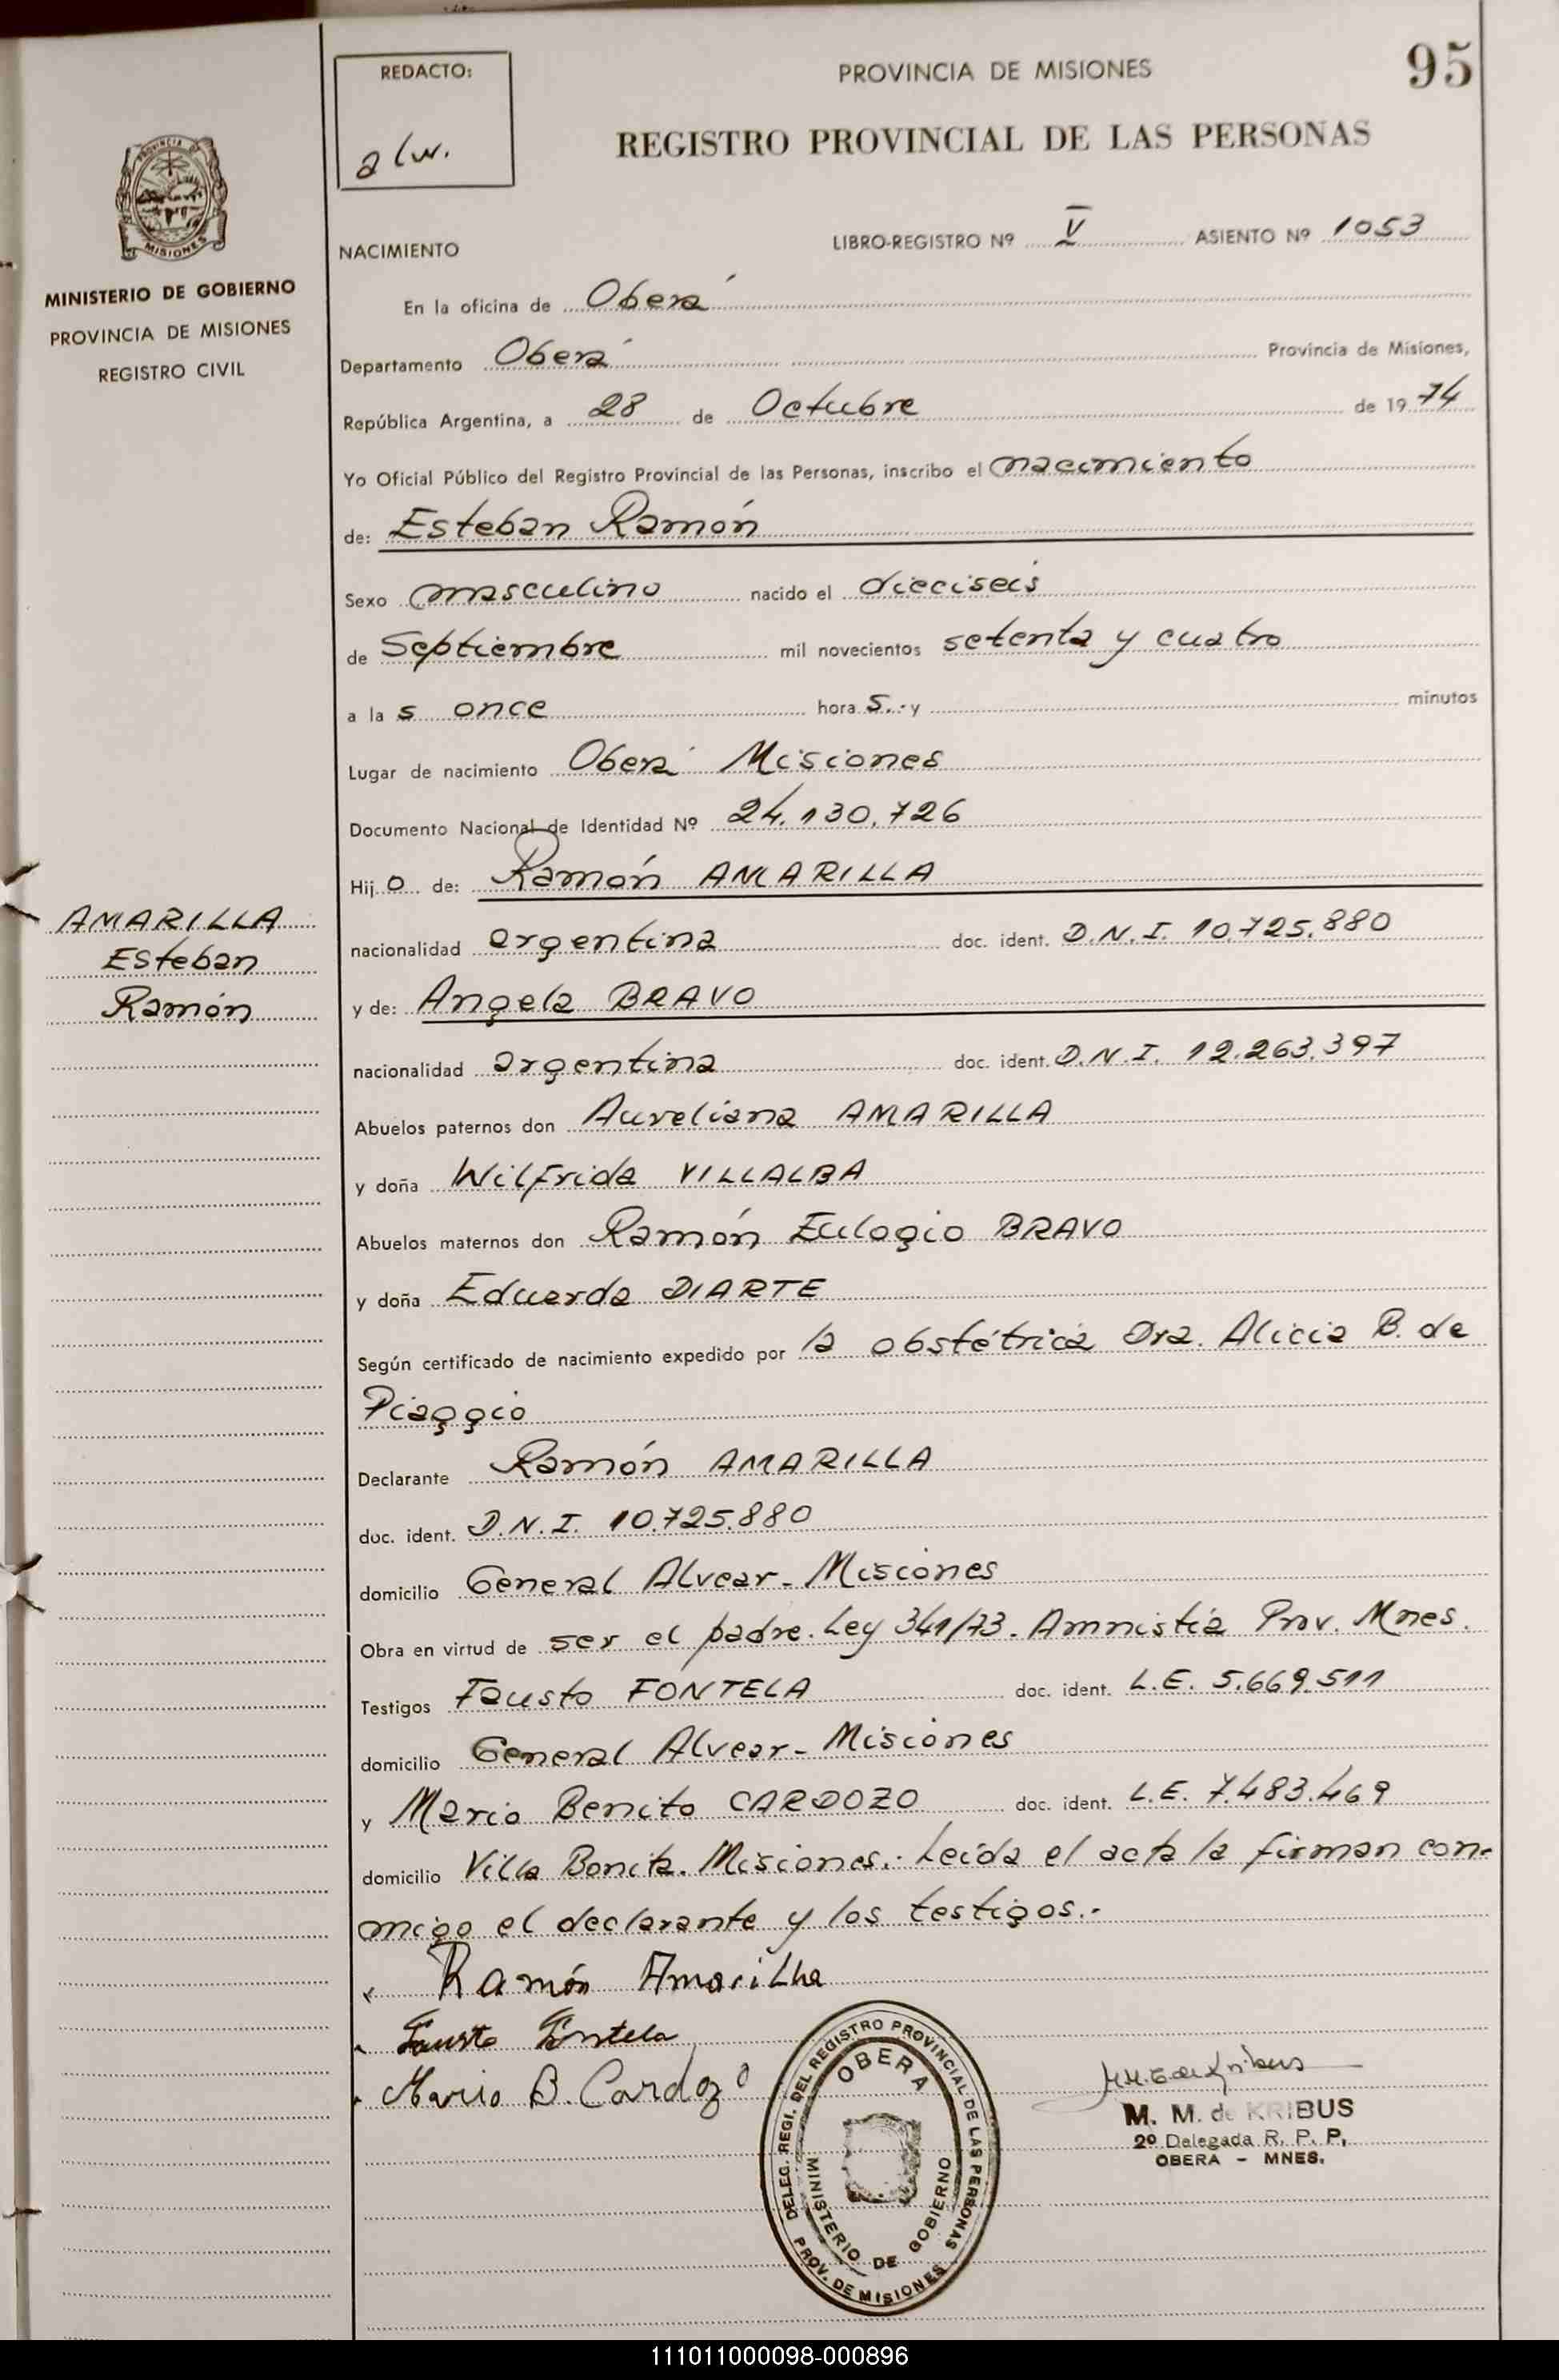 95
REDACTO:
alw.
PROVINCIA DE MISIONES
REGISTRO PROVINCIAL DE LAS PERSONAS
PROVINCIA DE
MISIONES
MINISTERIO DE GOBIERNO
PROVINCIA DE MISIONES
REGISTRO CIVIL
NACIMIENTO LIBRO-REGISTRO Nº V ASIENTO Nº 1053
En la oficina de Oberá
Departamento Oberá Provincia de Misiones,
República Argentina, a 28 de Octubre de 1974
Yo Oficial Público del Registro Provincial de las Personas, inscribo el nacimiento
de: Esteban Ramón
Sexo masculino nacido el dieciseis
de Septiembre mil novecientos setenta y cuatro
a la s once hora s.- y minutos
Lugar de nacimiento Oberá Misiones
Documento Nacional de Identidad Nº 24.130.726
Hij o de: Ramón AMARILLA
AMARILLA
Esteban
Ramón
nacionalidad argentina doc. ident. D.N.I. 10.725.880
y de: Angela BRAVO
nacionalidad argentina doc. ident. D.N.I. 12.263.397
Abuelos paternos don Aureliana AMARILLA
y doña Wilfrida VILLALBA
Abuelos maternos don Ramón Eulogio BRAVO
y doña Eduarda DIARTE
Según certificado de nacimiento expedido por la obstétrica Dra. Alicia B. de
Piaggio
Declarante Ramón AMARILLA
doc. ident. D.N.I. 10.725.880
domicilio General Alvear - Misiones
Obra en virtud de ser el padre. Ley 341/73. Amnistía Prov. Mnes.
Testigos Fausto FONTELA doc. ident. L.E. 5.669.511
domicilio General Alvear - Misiones
y Mario Benito CARDOZO doc. ident. L.E. 7.483.469
domicilio Villa Bonita. Misiones.- Leída el acta la firman con-
migo el declarante y los testigos.-
Ramón Amarilha
Fausto Fontela
Mario B. Cardozo
DELEG. REGI. DEL REGISTRO PROVINCIAL DE LAS PERSONAS
OBERA
MINISTERIO DE GOBIERNO
PROV. DE MISIONES
M. M. de KRIBUS
2º Delegada R. P. P.
OBERA - MNES.
111011000098-000896